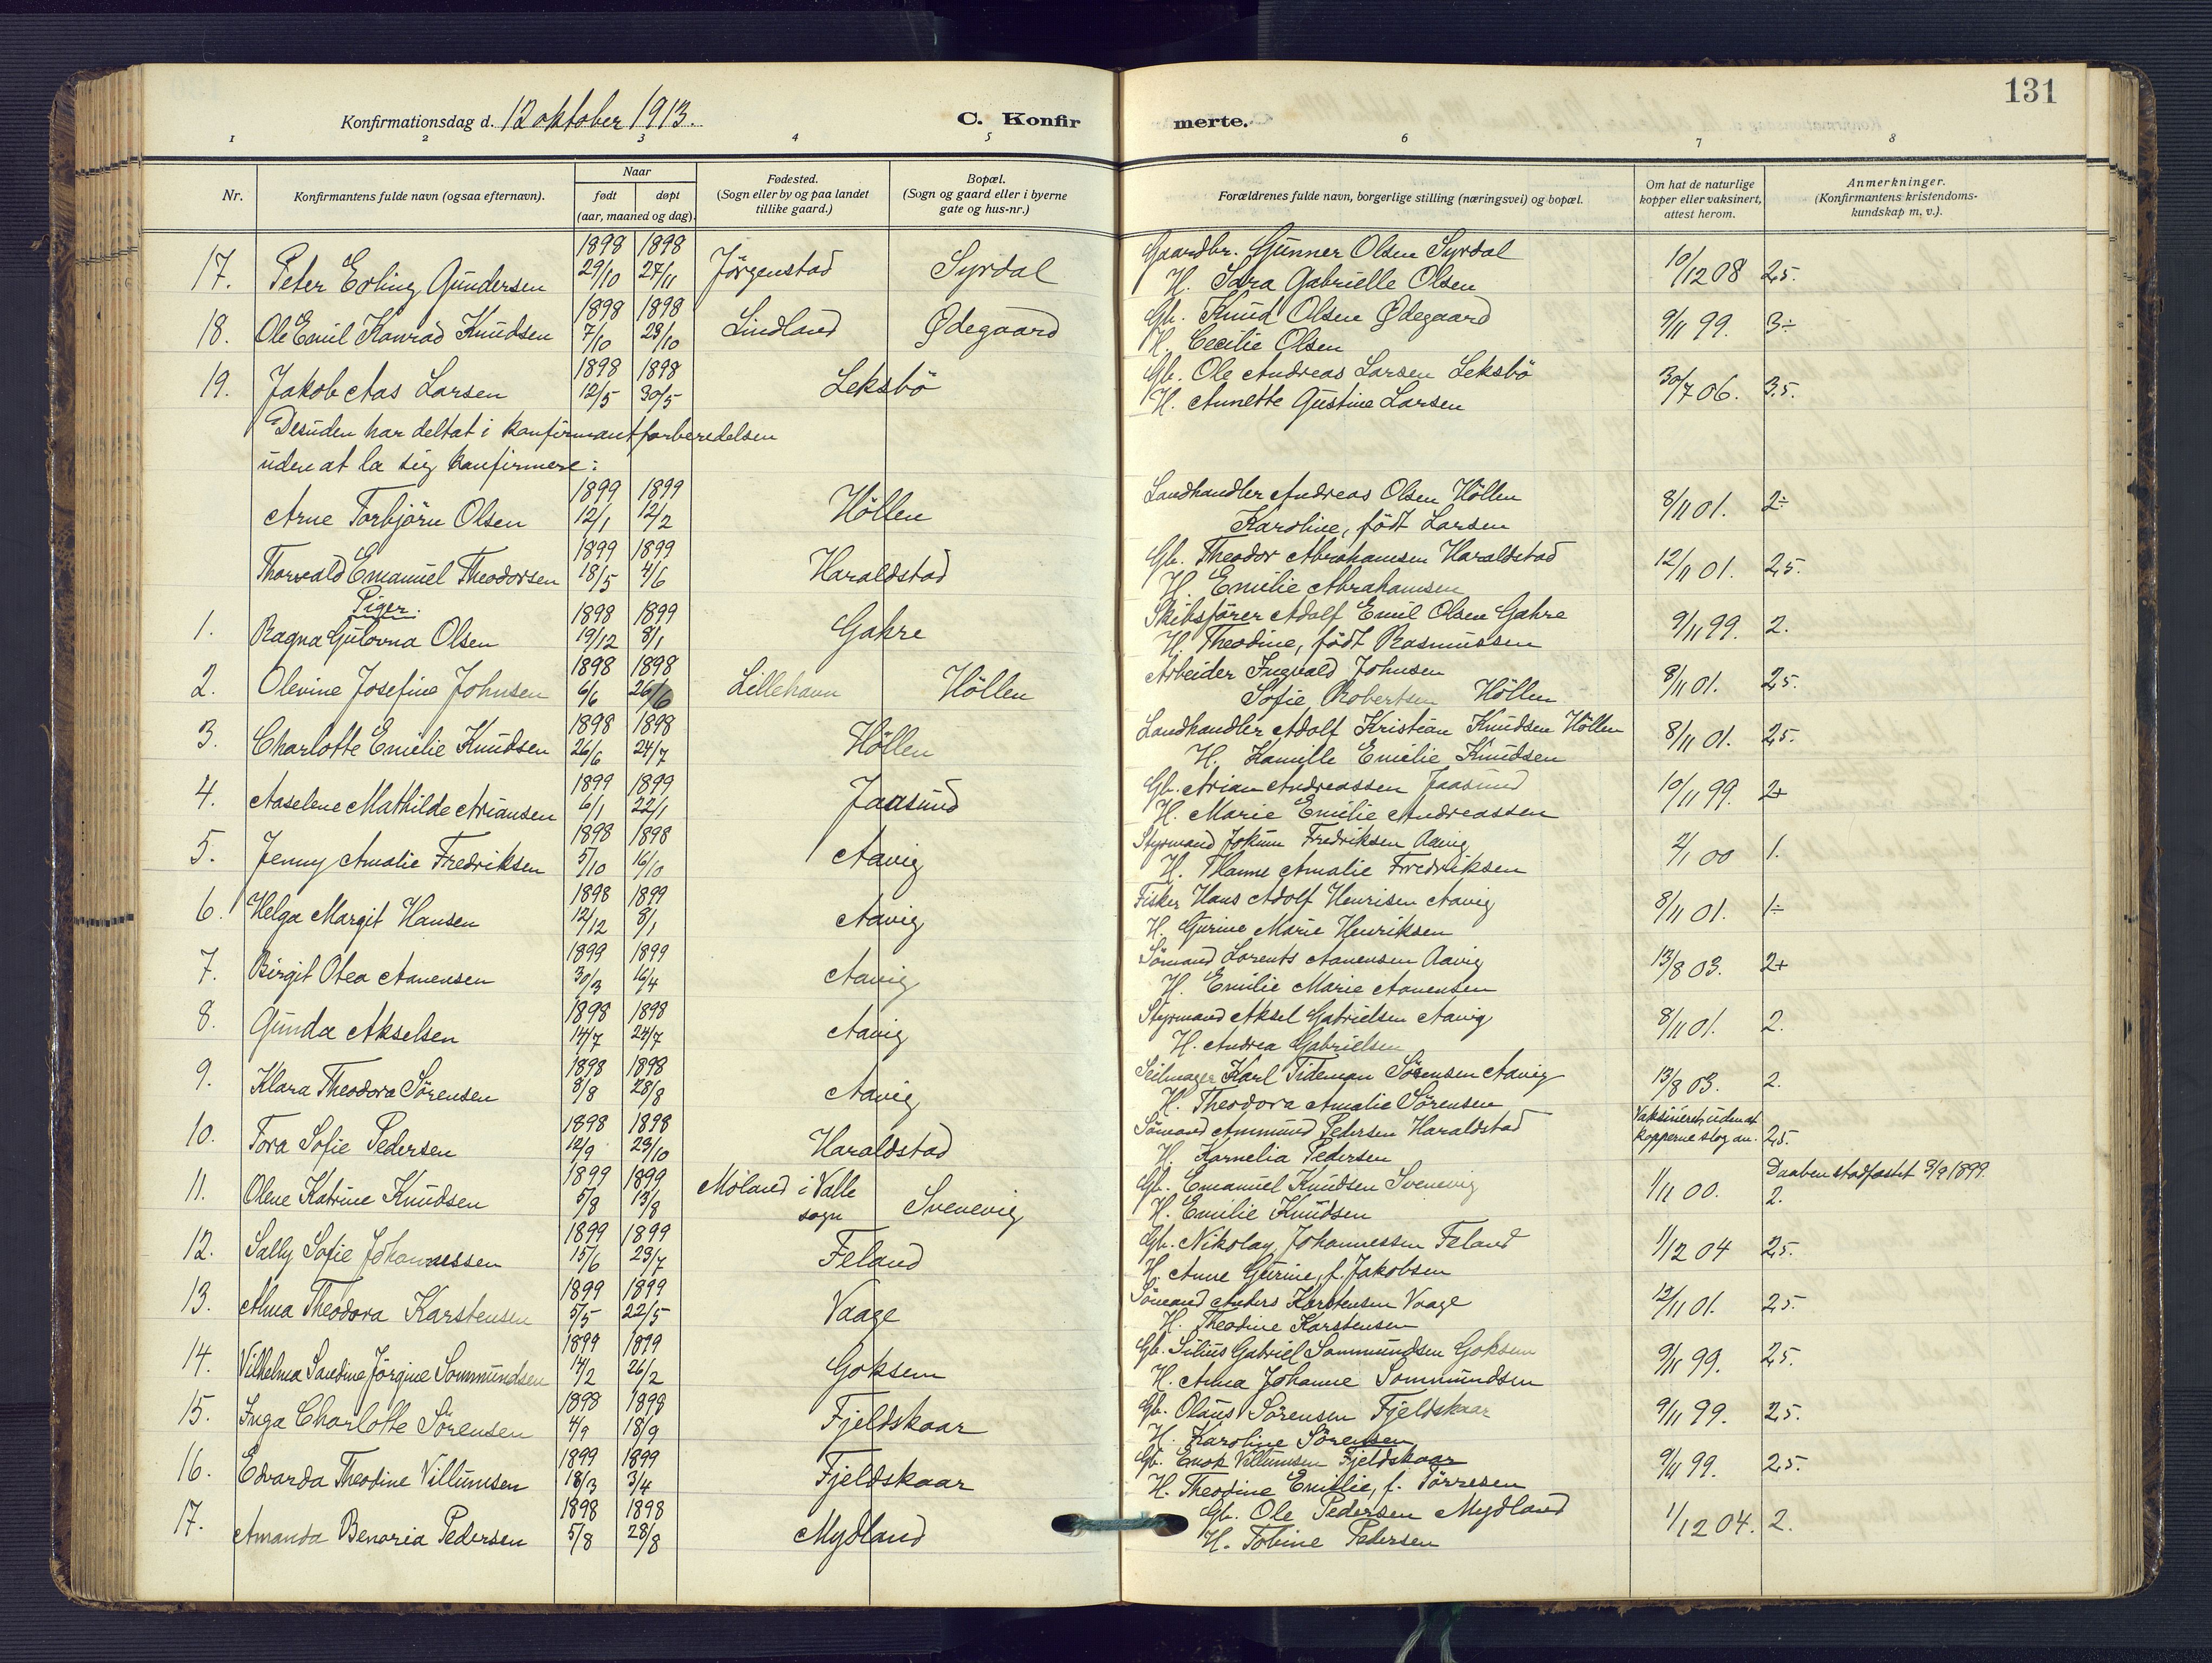 131
Konfirmationsdag d. 12 oktober 1913.
C. Konfirmerte.
1 2 3 4 5 6 7 8
Nr.
Konfirmantens fulde navn (ogsaa efternavn).
Naar
født døpt
(aar, maaned og dag).
Fødested.
(Sogn eller by og paa landet
tillike gaard.)
Bopæl.
(Sogn og gaard eller i byerne
gate og hus-nr.)
Forældrenes fulde navn, borgerlige stilling (næringsvei) og bopæl.
Om hat de naturlige
kopper eller vaksinert,
attest herom.
Anmerkninger.
(Konfirmantens kristendoms-
kundskap m. v.).
17. Peter Erling Gundersen 1898 29/10 1898 27/11 Jörgenstad Syrdal Gaardbr. Gunner Olsen Syrdal
H. Sara Gabrielle Olsen 10/12 08 2,5.
18. Ole Emil Konrad Knudsen 1898 7/10 1898 23/10 Lindland Ødegaard Gb. Knud Olsen Ødegaard
H. Cecilie Olsen 9/11 99. 3÷
19. Jakob Aas Larsen 1898 12/5 1898 30/5 Leksbö Gb. Ole Andreas Larsen Leksbö
H. Annette Gustine Larsen 30/7 06. 3,5.
Desuden har deltat i konfirmantforberedelsen
uden at la sig konfirmere:
Arne Torbjörn Olsen 1899 12/1 1899 12/2 Höllen Landhandler Andreas Olsen Höllen
Karoline, födt Larsen 8/11 01. 2÷
Thorvald Emanuel Theodorsen 1899 18/5 1899 4/6 Haraldstad Gb. Theodor Abrahamsen Haraldstad
H. Emilie Abrahamsen 12/11 01. 2,5.
Piger.
1. Ragna Gulovna Olsen 1898 19/12 1899 8/1 Gahre Skibsförer Adolf Emil Olsen Gahre
H. Theodine, födt Rasmussen 9/11 99. 2.
2. Olevine Josefine Johnsen 1898 6/6 1898 26/6 Lillehavn Höllen Arbeider Ingvald Johnsen
Sofie Robertsen Höllen 8/11 01. 2,5.
3. Charlotte Emilie Knudsen 1898 26/6 1898 24/7 Höllen Landhandler Adolf Kristian Knudsen Höllen
H. Kamille Emilie Knudsen 8/11 01. 2,5.
4. Aaselene Mathilde Ariansen 1899 6/1 1899 22/1 Jaasund Gb. Arian Andreassen Jaasund
H. Marie Emilie Andreassen 10/11 99. 2+
5. Jenny Amalie Fredriksen 1898 5/10 1898 16/10 Aavig Styrmand Jokum Fredriksen Aavig
H. Hanne Amalie Fredriksen 2/1 00 1.
6. Helga Margit Hansen 1898 12/12 1899 8/1 Aavig Fisker Hans Adolf Henrisen Aavig
H. Gurine Marie Henriksen 8/11 01. 1÷
7. Birgit Otea Aanensen 1899 30/3 1899 16/4 Aavig Sömand Lorents Aanensen Aavig
H. Emilie Marie Aanensen 13/8 03. 2+
8. Gunda Akselsen 1898 14/7 1898 24/7 Aavig Styrmand Aksel Gabrielsen Aavig
H. Andrea Gabrielsen 8/11 01. 2.
9. Klara Theodora Sörensen 1898 8/8 1898 28/8 Aavig Seilmager Karl Tideman Sörensen Aavig
H. Theodora Amalie Sörensen 13/8 03. 2.
10. Tora Sofie Pedersen 1898 12/9 1898 23/10 Haraldstad Sömand Ammund Pedersen Haraldstad
H. Kornelia Pedersen Vaksineret, uden at
kopperne slog an. 2,5.
11. Olene Katrine Knudsen 1899 5/8 1899 13/8 Möland i Valle
sogn Svenevig Gb. Emanuel Knudsen Svenevig
H. Emilie Knudsen 1/11 00. Daaben stadfæstet 3/9 1899.
2.
12. Sally Sofie Johannessen 1899 15/6 1899 23/7 Feland Gb. Nikolay Johannessen Feland
H. Anne Gurine, f. Jakobsen 1/12 04 2,5.
13. Alma Theodora Karstensen 1899 5/5 1899 22/5 Vaage Sömand Anders Karstensen Vaage
H. Theodine Karstensen 12/11 01. 2,5.
14. Vilhelma Sandine Jörgine Sommundsen 1899 14/2 1899 26/2 Goksem Gb. Silius Gabriel Sommundsen Goksem
H. Anna Johanne Sommundsen 9/11 99. 2,5.
15. Inga Charlotte Sörensen 1898 4/9 1898 18/9 Fjeldskaar Gb. Olaus Sörensen Fjeldskaar
H. Karoline Sörensen 9/11 99. 2,5.
16. Edvarda Theodine Villumsen 1899 18/3 1899 3/4 Fjeldskaar Gb. Enok Villumsen Fjeldskaar
H. Theodine Emilie, f. Törresen 9/11 99. 2,5.
17. Amanda Benoria Pedersen 1898 5/8 1898 28/8 Mydland Gb. Ole Pedersen Mydland
H. Tobine Pedersen 1/12 04. 2.